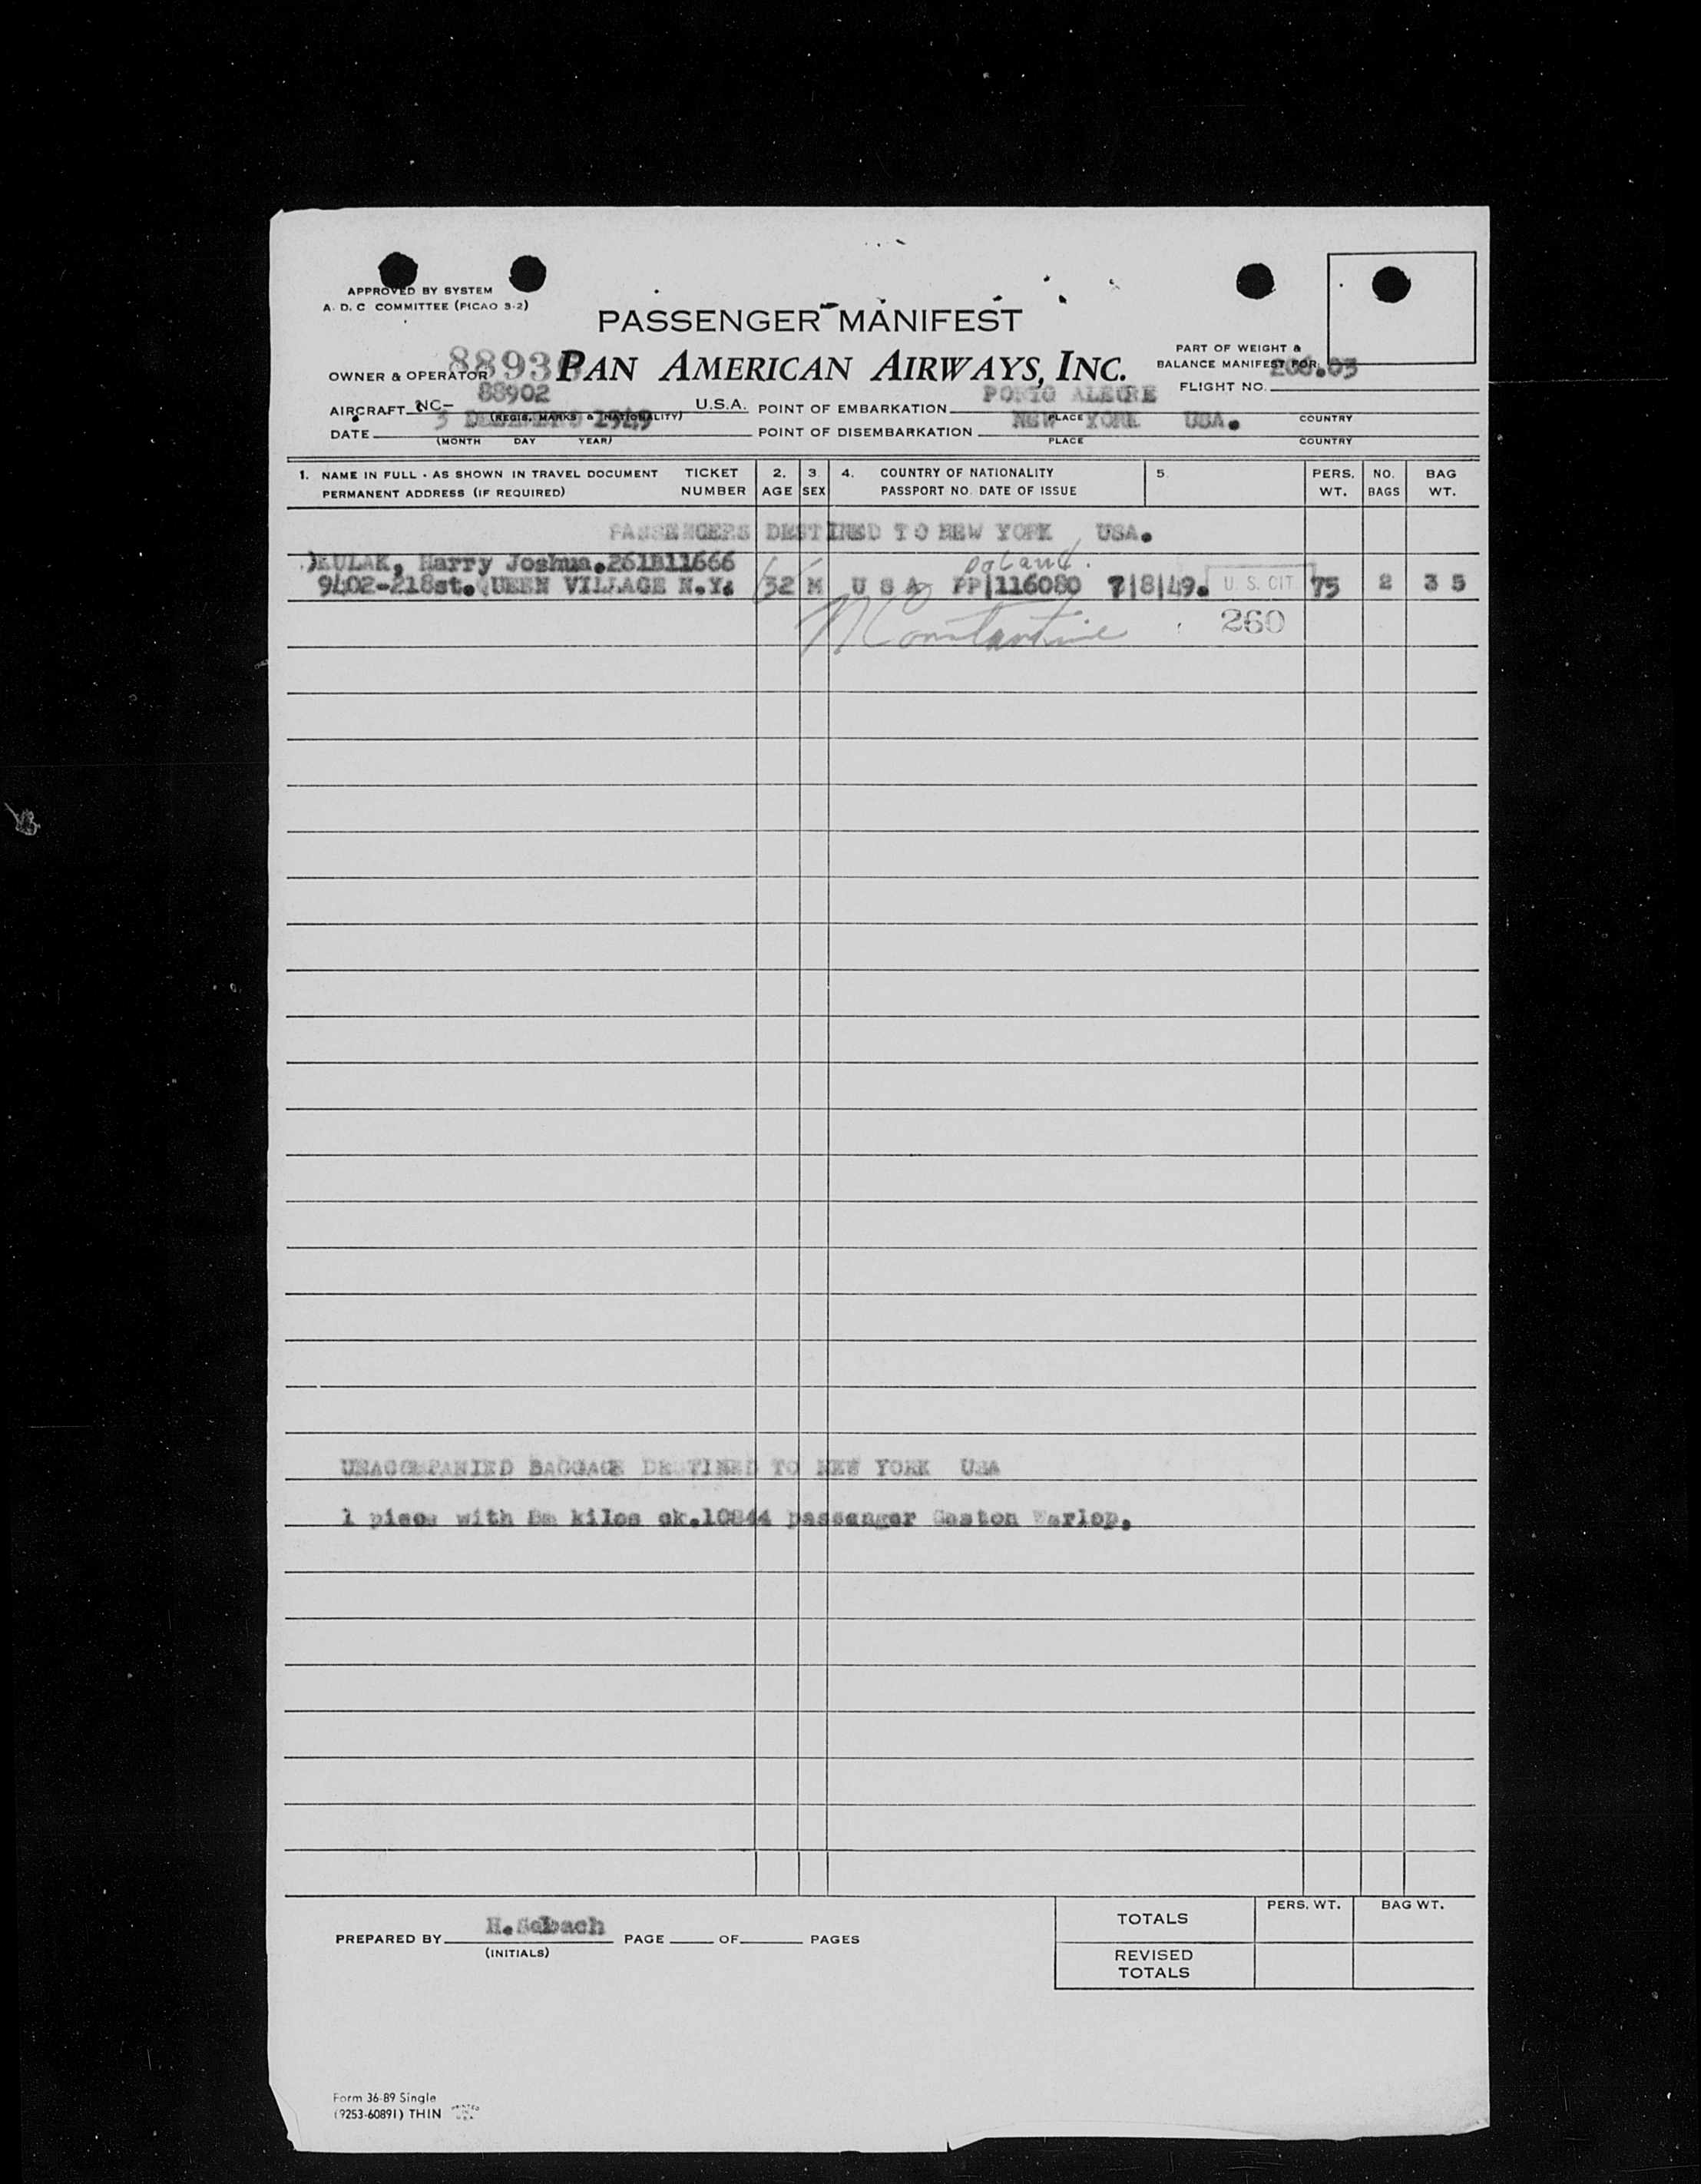 APPROVED BY SYSTEM
A. D. C COMMITTEE (PICAO 3-2)
PASSENGER MANIFEST
PART OF WEIGHT &
BALANCE MANIFEST FOR
OWNER & OPERATOR 8893 PAN AMERICAN AIRWAYS, INC.
FLIGHT NO. 206.03
AIRCRAFT NC- 88902 U.S.A. POINT OF EMBARKATION PORTO ALEGRE
(REGIS. MARKS & NATIONALITY) PLACE COUNTRY
DATE 3 DECEMBER 1949 POINT OF DISEMBARKATION NEW YORK USA.
(MONTH DAY YEAR) PLACE COUNTRY
1. NAME IN FULL - AS SHOWN IN TRAVEL DOCUMENT TICKET 2. 3. 4. COUNTRY OF NATIONALITY 5. PERS. NO. BAG
PERMANENT ADDRESS (IF REQUIRED) NUMBER AGE SEX PASSPORT NO. DATE OF ISSUE WT. BAGS WT.
PASSENGERS DESTINED TO NEW YORK USA.
KULAK, Harry Joshua.261B11666 Poland.
9402-218st. QUEEN VILLAGE N.Y. 32 M U S A PP|116080 7|8|49. U. S. CIT 75 2 3 5
N Constantine 260
UNACCOMPANIED BAGGAGE DESTINED TO NEW YORK USA
1 piece with kilos ck.10844 passanger Gaston Warlop.
PREPARED BY H. PAGE OF PAGES
(INITIALS)
PERS. WT. BAG WT.
TOTALS
REVISED
TOTALS
Form 36-89 Single
(9253-60891) THIN PRINTED IN U.S.A.